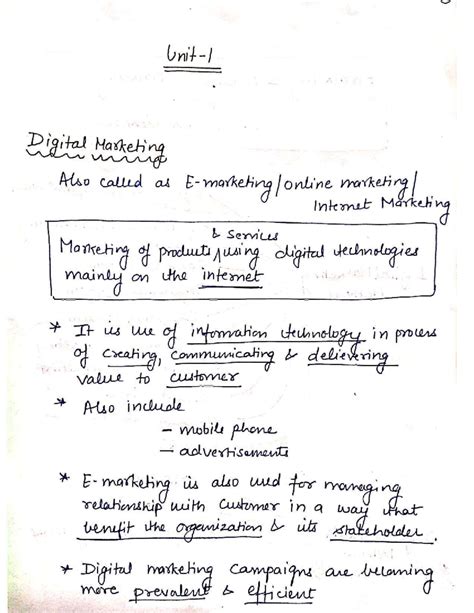 Unit-1
Digital Marketing
Also called as E-marketing/online marketing/
Internet Marketing
& Services
Marketing of products, using digital technologies
mainly on the internet
* It is use of information technology in process
of creating, communicating & delievering
value to customer
* Also include
- mobile phone
- advertisements
* E-marketing is also used for managing
relationship with customer in a way that
benefit the organization & its stakeholder.
* Digital marketing campaigns are becoming
more prevalent & efficient